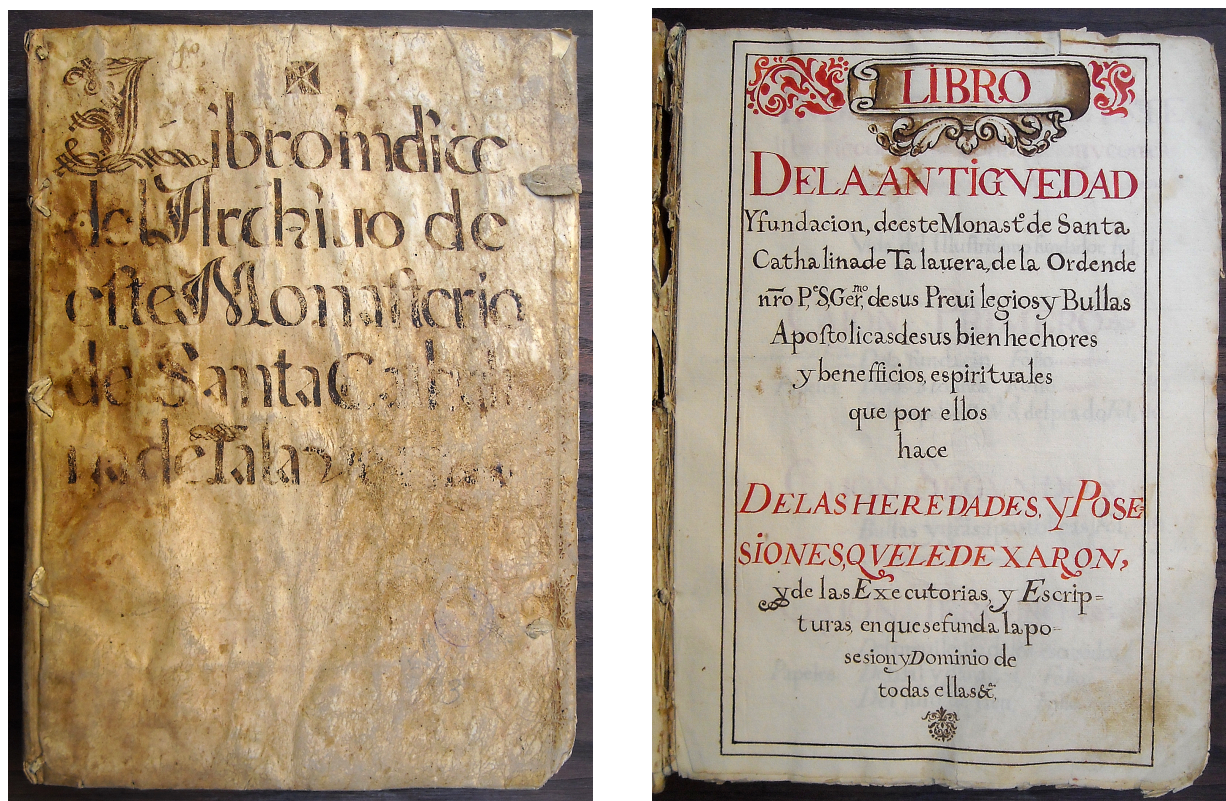 Libro indice
del Archiuo de
este Monasterio
de Santa Cathali
na de Talavera
LIBRO
DE LA ANTIGVEDAD
Y fundacion, de este Monast.º de Santa
Cathalina de Talauera, de la Orden de
nr̃o P.ᵉ S. Ger.ᵐᵒ, de sus Preuilegios y Bullas
Apostolicas de sus bien hechores
y benefficios, espirituales
que por ellos
hace
DE LAS HEREDADES, Y POSE-
SIONES, QVE LE DEXARON,
y de las Executorias, y Escrip=
turas, en que se funda la po-
sesion y Dominio de
todas ellas &ª.